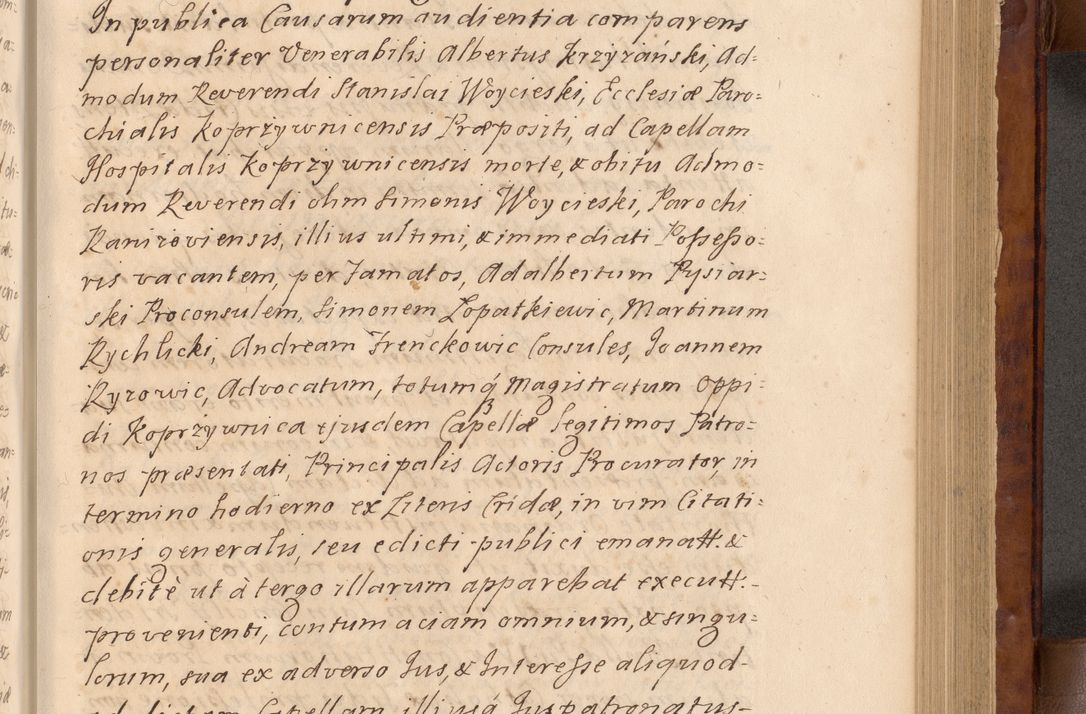 In publica Causarum audientia comparens
personaliter Venerabilis Albertus Krzyżański, Ad-
modum Reverendi Stanislai Woycieski, Ecclesiæ Paro-
chialis Koprzywnicensis Præpositi, ad Capellam
Hospitalis Koprzywnicensis morte, & obitu Admo-
dum Reverendi olim Simonis Woycieski, Parochi
Ranizoviensis, illius ultimi, & immediati Possesso-
ris vacantem, per Famatos, Adalbertum Pysiar-
ski Proconsulem, Simonem Lopatkiewic, Martinum
Rychlicki, Andream Frenckowic Consules, Joannem
Ryrowic, Advocatum, totumq́ Magistratum Oppi-
di Koprzywnica ejusdem Capellæ legitimos Patro-
nos præsentati, Principalis Actoris Procurator, in
termino hodierno ex Literis Cridæ, in vim Citati-
onis generalis, seu edicti publici emanatt. &
debitè ut à tergo illarum apparebat executt.-
provenienti, contumaciam omnium, & singu-
lorum, sua ex adverso Jus, & Interesse aliquod-
ad dictam Capellam, illiusq́ Juspatronatus-